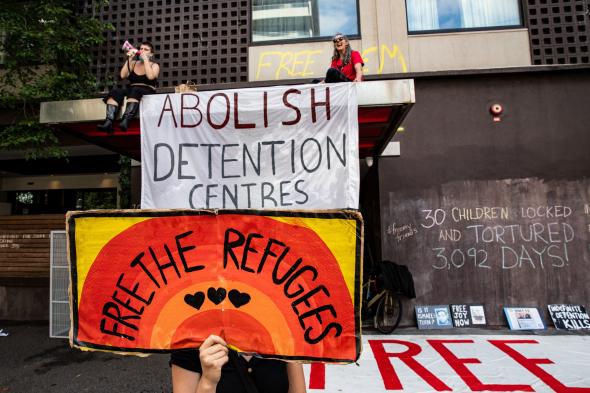 FREE THEM
ABOLISH
DETENTION
CENTRES
FREE THE REFUGEES
30 CHILDREN LOCKED
AND TORTURED
3,092 DAYS!
IS IT
FREE
JOY
NOW
INDEFINITE
DETENTION
KILLS
FREE